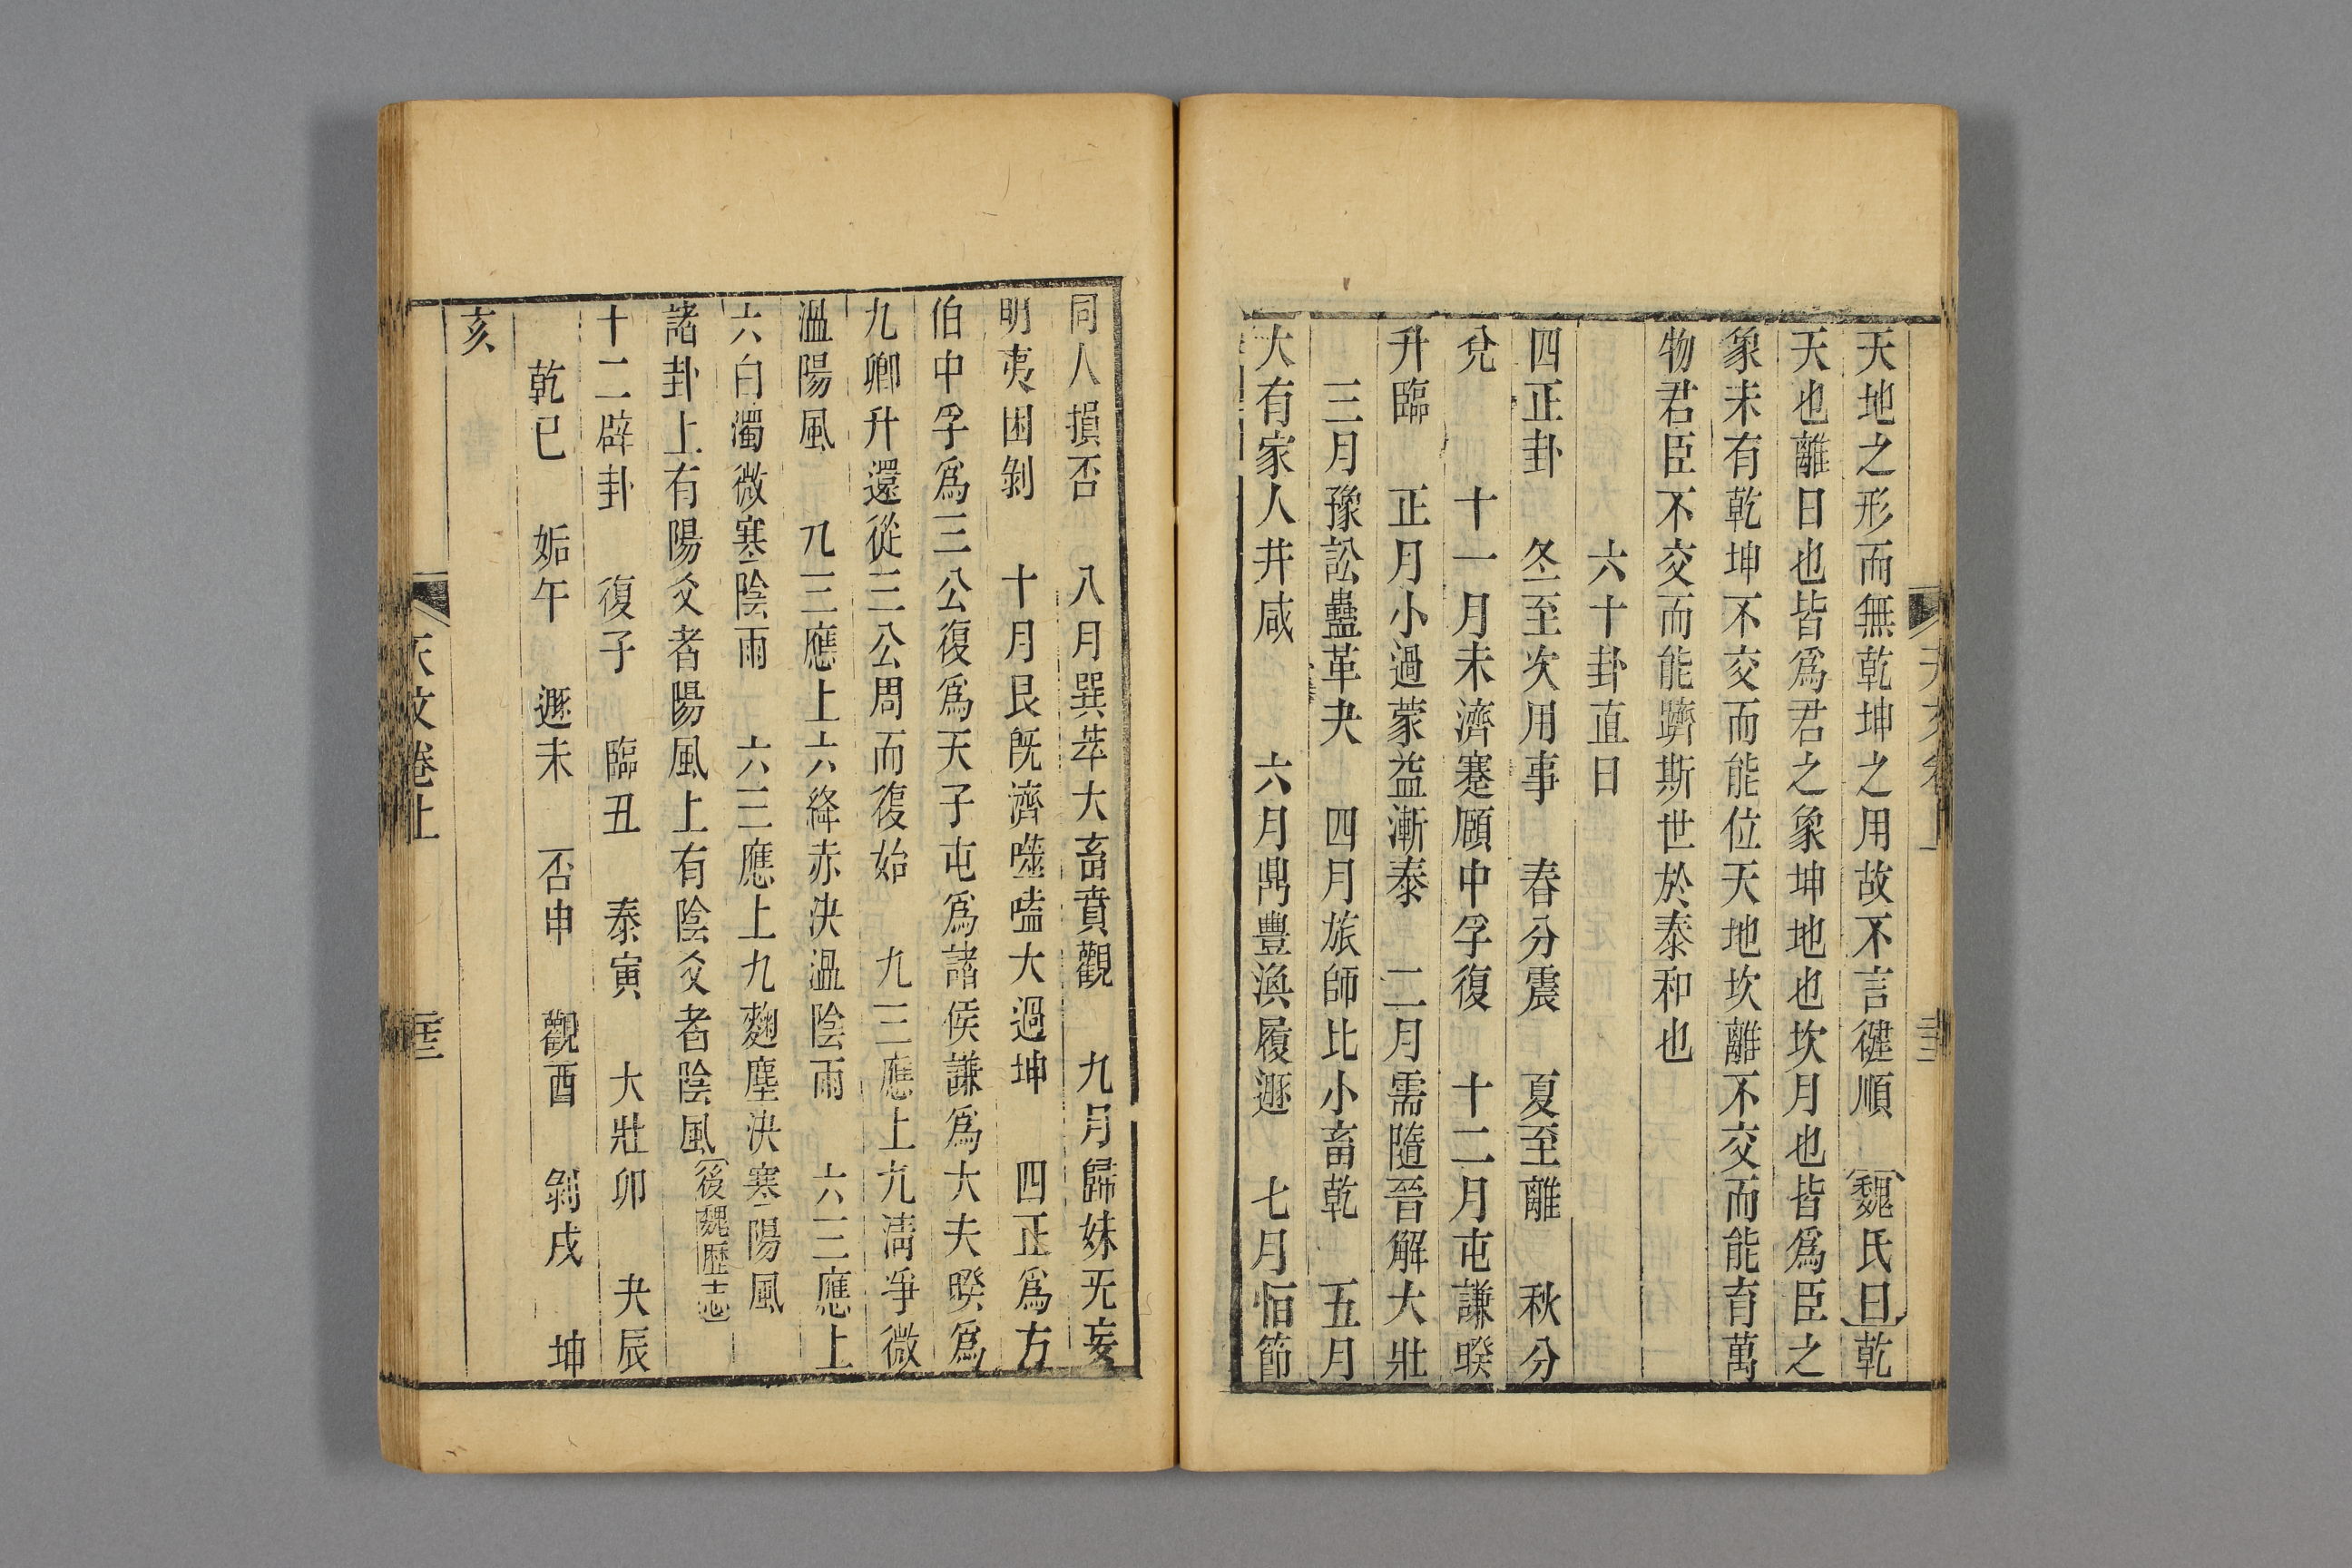 天地之形而無乾坤之用故不言健順　魏氏曰乾
天也離日也皆爲君之象坤地也坎月也皆爲臣之
象未有乾坤不交而能位天地坎離不交而能育萬
物君臣不交而能躋斯世於泰和也
六十卦直日
四正卦　冬至次用事　春分震　夏至離　秋分
兌　十一月未濟蹇頤中孚復　十二月屯謙睽
升臨　正月小過蒙益漸泰　二月需隨晉解大壯
三月豫訟蠱革夬　四月旅師比小畜乾　五月
大有家人井咸　六月鼎豐渙履遯　七月恒節
同人損否　八月巽萃大畜賁觀　九月歸妹无妄
明夷困剝　十月艮旣濟噬嗑大過坤　四正爲方
伯中孚爲三公復爲天子屯爲諸侯謙爲大夫睽爲
九卿升還從三公周而復始　九三應上九淸爭微
溫陽風　九三應上六絳赤決溫陰雨　六三應上
六白濁微寒陰雨　六三應上九麴塵決寒陽風
諸卦上有陽爻者陽風上有陰爻者陰風後魏歷志
十二辟卦　復子　臨丑　泰寅　大壯卯　夬辰
乾巳　姤午　遯未　否申　觀酉　剝戌　坤
亥
天文卷上